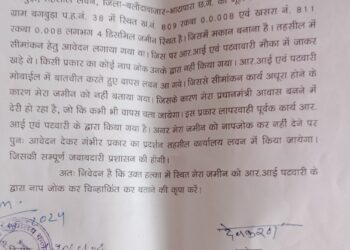 तहसील लवन, जिला-बलौदाबाजार-भाटापारा छ.ग. का
ग्राम बगबुड़ा प.ह.नं. 38 में स्थित ख.नं. 809 रकबा 0.0.008 एवं खसरा नं. 811
रकबा 0.008 लगभग 4 डिसमिल जमीन स्थित है। जिसमें मकान बनाना है। तहसील में
सीमांकन हेतु आवेदन लगाया गया था। जिस पर आर.आई एवं पटवारी मौका में जाकर
खड़े थे। किसी प्रकार का कोई नाप जोक उनके द्वारा नहीं किया गया। आर.आई एवं पटवारी
मोबाईल में बातचीत करते हुए वापस लवन आ गये। जिससे सीमांकन कार्य अधूरा होने के
कारण मेरा जमीन को नहीं बताया गया। जिसके कारण मेरा प्रधानमंत्री आवास बनने में
देरी हो रहा है, जो कि कभी भी वापस चला जायेगा। इस प्रकार लापरवाही पूर्वक कार्य आर.
आई एवं पटवारी के द्वारा किया गया है। अगर मेरा जमीन को नापजोक कर नहीं देने पर
पुनः आवेदन देकर गंभीर प्रकार का प्रदर्शन तहसील कार्यालय लवन में किया जायेगा।
जिसकी सम्पूर्ण जवाबदारी प्रशासन की होगी।
अतः निवेदन है कि उक्त हल्का में स्थित मेरा जमीन को आर.आई पटवारी के
द्वारा नाप जोक कर चिन्हांकित कर बताने की कृपा करें।